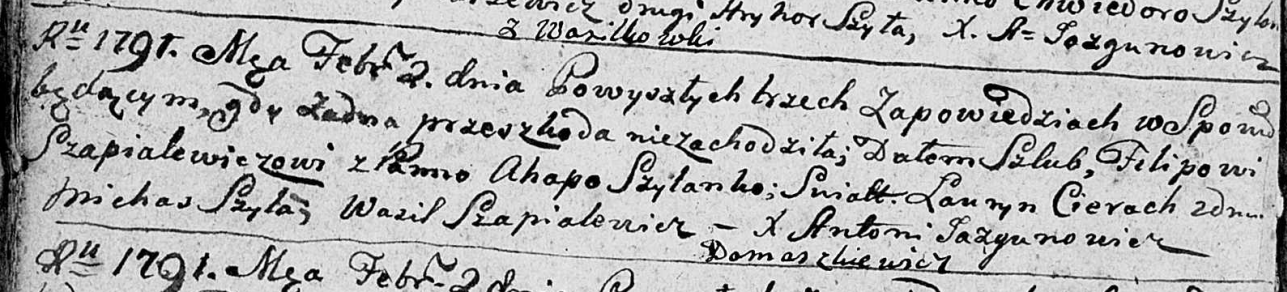 drugi Hryhor Szyła, X. A= Jazgunowicz
Z Wasilkowki
Ru 1791. Mca Febr. 2. dnia Powyszłych trzech Zapowiedziach w Spowied
będącym, gdy żadna przeszkoda niezachodziła; Dałem Szlub, Filipowi
Szapialewiczowi z Panno Ahapo Szylanko; Swiatt. Lauryn Cierach
Michas Szyła, Wasil Szapialewicz – X Antoni Jazgunowicz
Domaszkiewicz
Ru 1791. Mca Febr. 2 dnia